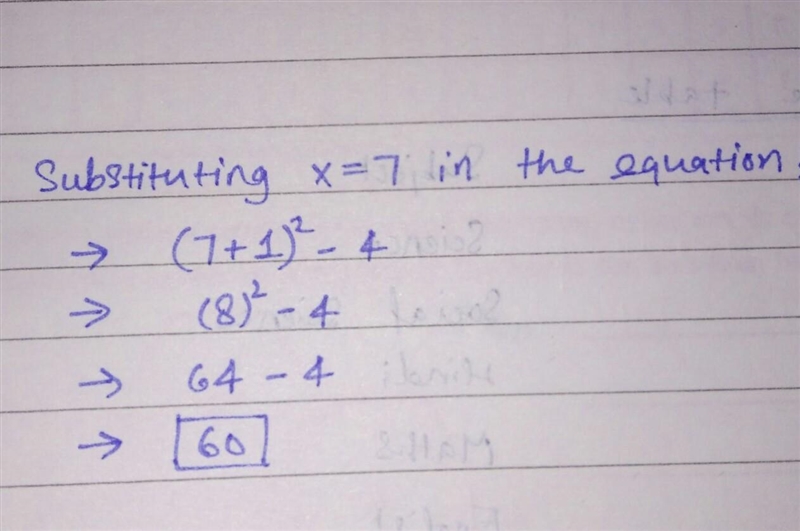 Substituting x=7 in the equation.
→ (7+1)² - 4
→ (8)² - 4
→ 64 - 4
→ 60